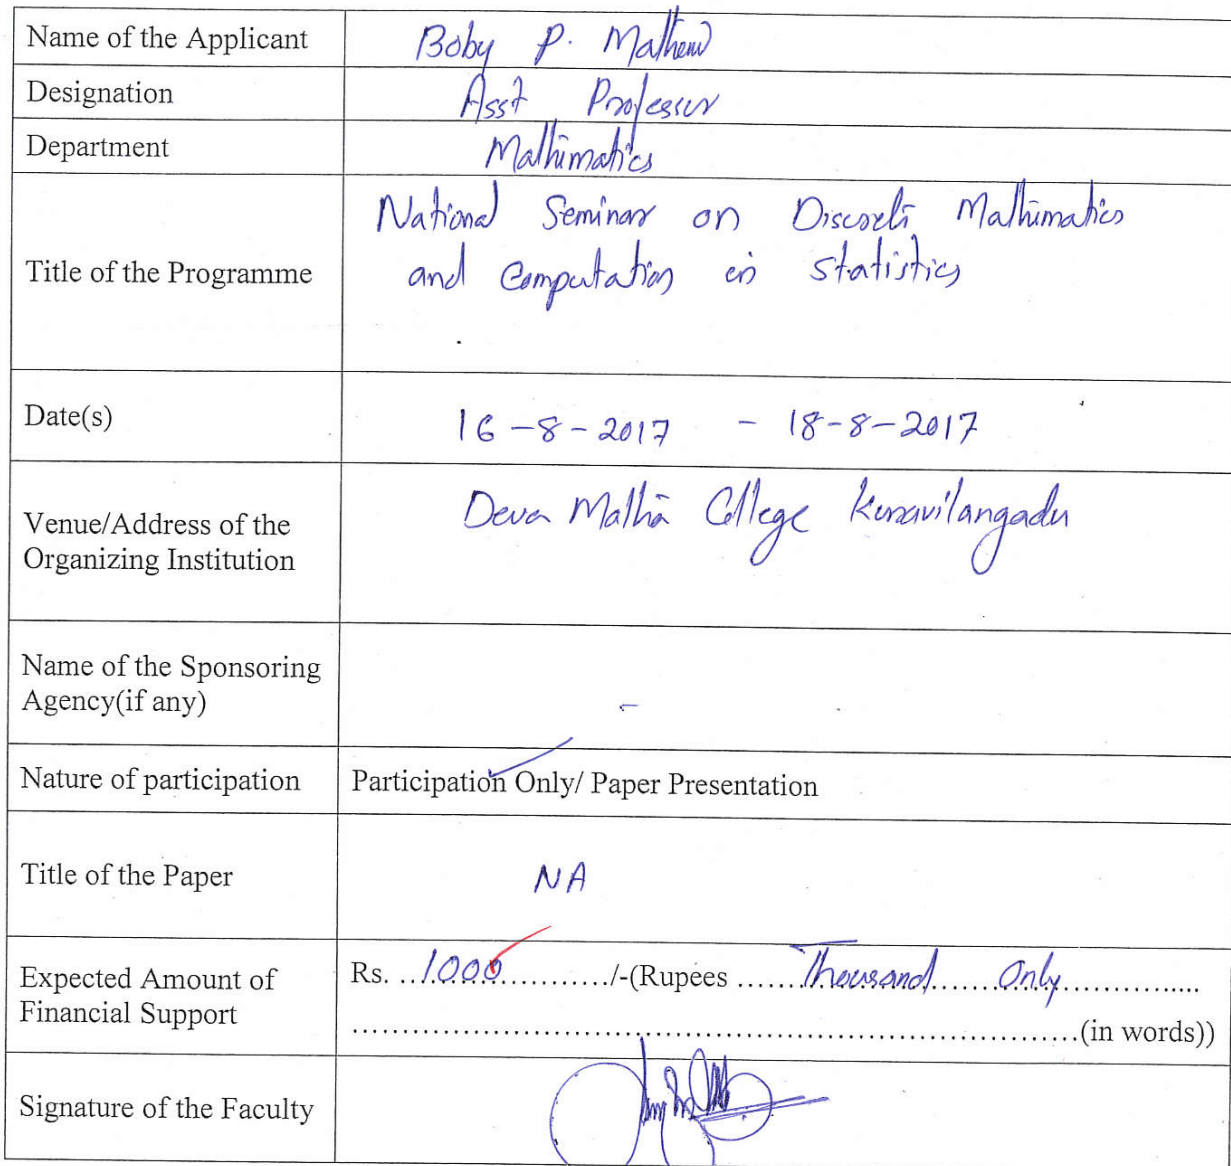 Name of the Applicant Boby P. Mathew
Designation Asst Professor
Department Mathematics
Title of the Programme National Seminar on Discrete Mathematics
and Computation in Statistics
Date(s) 16-8-2017 - 18-8-2017
Venue/Address of the
Organizing Institution Deva Matha College Kuravilangadu
Name of the Sponsoring
Agency(if any) -
Nature of participation Participation Only/ Paper Presentation
Title of the Paper NA
Expected Amount of
Financial Support Rs. ...1000............/-(Rupees ......Thousand......Only...............
..................................................................(in words))
Signature of the Faculty